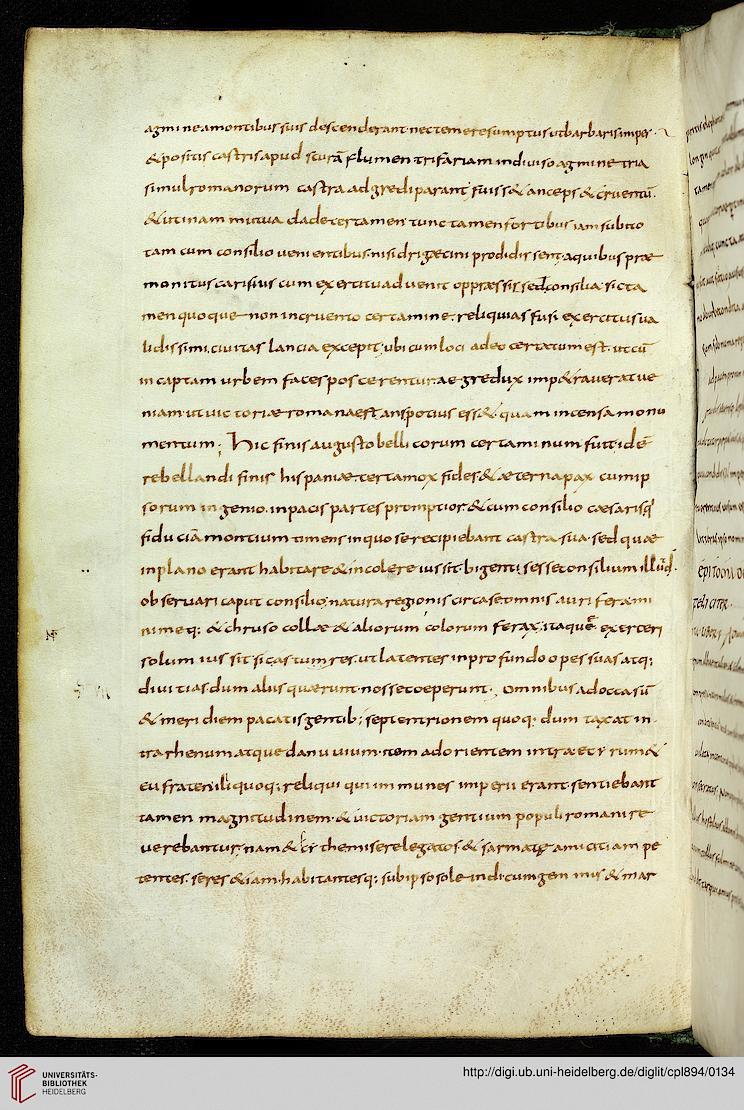 agmine amontibus suis descenderant nec temere sumptus ut barbaris impes
& positis castris apud sturā flumen trifariam indiviso agmine tria
simul romanorum castra adgredi parant fuiss& anceps & cruentū.
& utinam mutua clade certamen tunc tam en fortibus iam subito
tam cum consilio venientibus nisi drigecini prodidissent aquibus præ
monitus carisius cum exercitu advenit oppræssis sed consilia sic ta
men quoque non incruento certamine. reliquias fusi exercitus ua
lidissimi civitas lancia excepit, ubi cum loci adeo certatum est. ut cū
in captam urbem faces poscerentur. aegre dux imp&raverat ve
niam ut uictoriæ romanae st ans potius ess& quam incensa monu
mentum; Hic finis augusto bellicorum certaminum fuit idē
rebellandi finis hispaniæ certa mox fides & æterna pax cum ip
sorum ingenio. in pacis partes promptior & cum consilio cæsaris q
fiduciā montium timens in quo se recipiebant castra sua. sed quæ
in plano erant habitare & incolere iussit.
observari caput consilio natura regionis circa se omnis aurifera mi
nimeq; & chrusocollæ & aliorum colorum ferax; itaque exerceri
solum iussit sic
divitias dum aliis quærunt. nosse coeperunt. Omnibus ad occasū
& meridiem pacatis gentib; septentrionem quoq; dum taxat in
tra rhenum atque danuvium. item ad orientem intra et
eufraten illi quoq; reliqui qui immunes imperii erant. sentiebant
tamen magnitudinem. & uictoriam gentium populi romani re
verebantur, nam & scythe misere legatos & sarmatę amicitiam pe
tentes. seres & iam. habitantesq; sub ipso sole indi. cum gemmis & mar
UNIVERSITÄTS-
BIBLIOTHEK
HEIDELBERG
http://digi.ub.uni-heidelberg.de/diglit/cpl894/0134